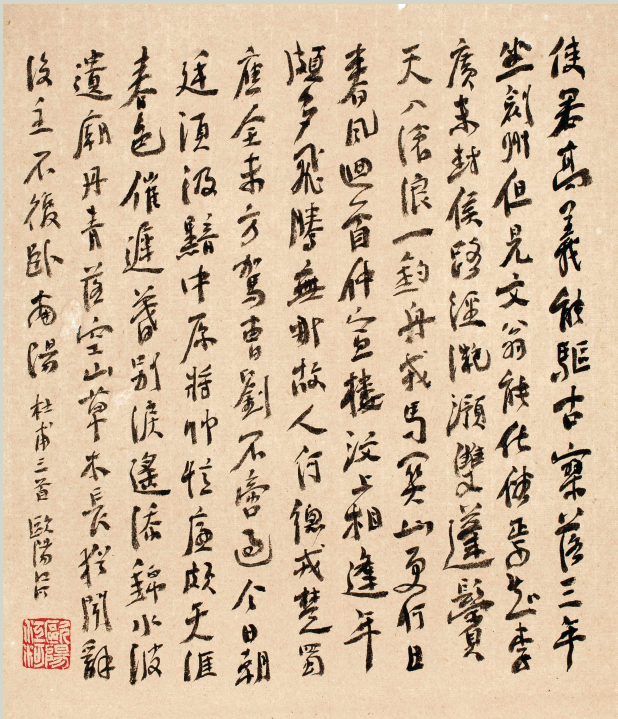 使君高義能驅古寥落三年
坐劍州但見文翁能化俗焉知李
廣未封侯路涇灔澦雙蓬鬢
天入滄浪一釣舟戎馬関山更何日
春風迴首仲宣樓汶上相逢年
頗多飛騰無那故人何總戎楚蜀
應全未方駕曹劉不啻過今日朝
廷須汲黯中原將帥憶廉頗天涯
春色催遲暮別淚遙添錦水波
遺廟丹青落空山草木長猶聞辭
後主不復卧南陽 杜甫三首 歐陽
歐陽江河